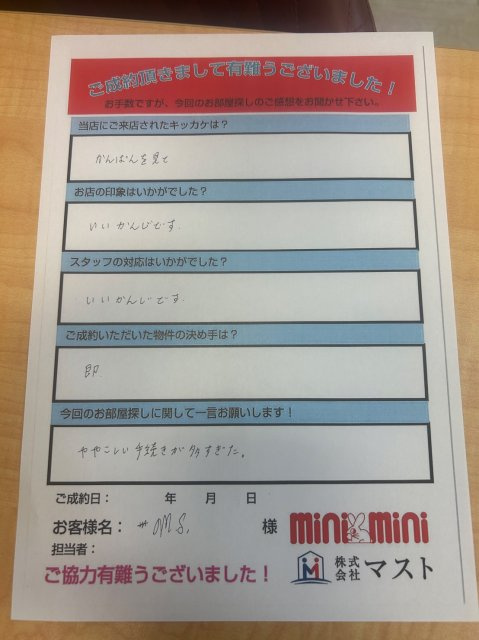 ご成約頂きまして有難うございました！
お手数ですが、今回のお部屋探しのご感想をお聞かせ下さい。
当店にご来店されたキッカケは？
かんばんを見て
お店の印象はいかがでした？
いいかんじです.
スタッフの対応はいかがでした？
いいかんじです.
ご成約いただいた物件の決め手は？
即.
今回のお部屋探しに関して一言お願いします！
ややこしい手続きが多すぎた。
ご成約日： 年 月 日
お客様名： M.S. 様
担当者：
ご協力有難うございました！
mini mini
株式会社 マスト